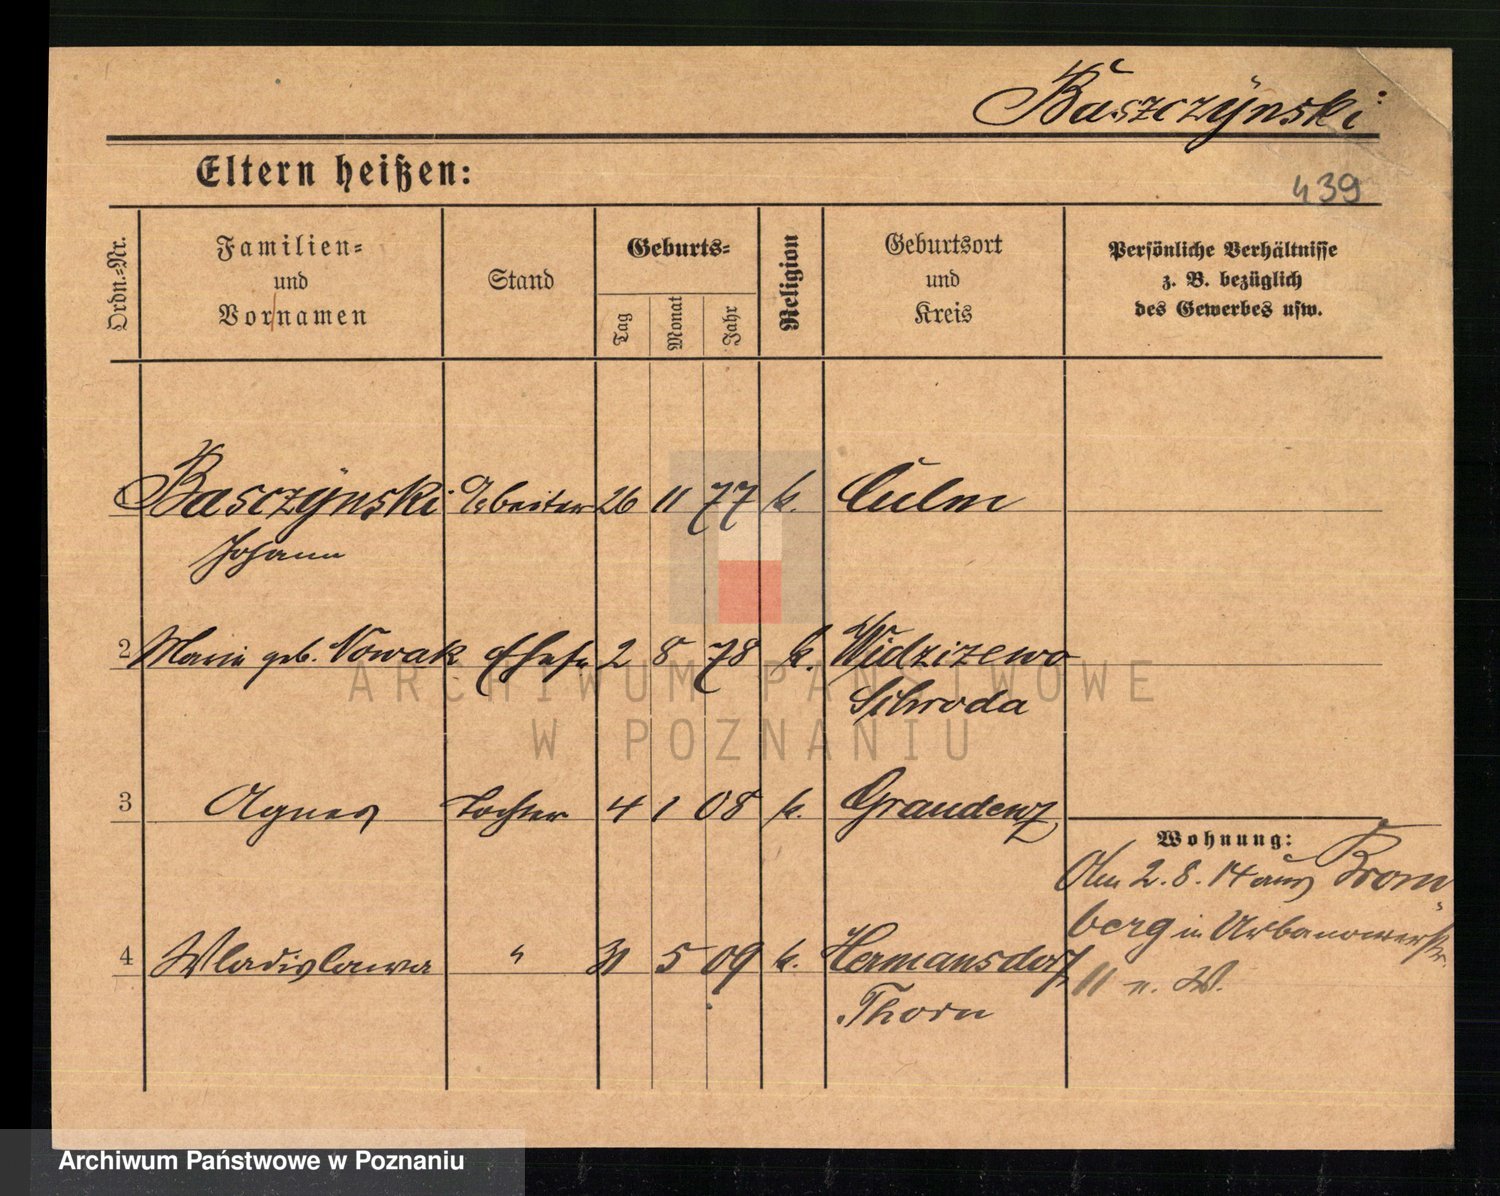 Baszczÿnski
Eltern heißen:
439
Ordn.=Nr.
Familien=
und
Vornamen
Stand
Geburts=
Tag
Monat
Jahr
Religion
Geburtsort
und
Kreis
Persönliche Verhältnisse
z. B. bezüglich
des Gewerbes usw.
1 Basczÿnski Arbeiter 26 11 77 k. Culm
Johann
2 Maria geb. Nowak Ehefr. 2 8 78 k. Widzizewo
Schroda
3 Agnes Tochter 4 1 08 k. Graudenz
Wohnung:
Am 2. 8. 14 aus Brom
berg in Urbanowerstr.
4 Wladislawa " 31 5 09 k. Hermansdorf
11 n. W.
Thorn
ARCHIWUM PAŃSTWOWE
W POZNANIU
Archiwum Państwowe w Poznaniu